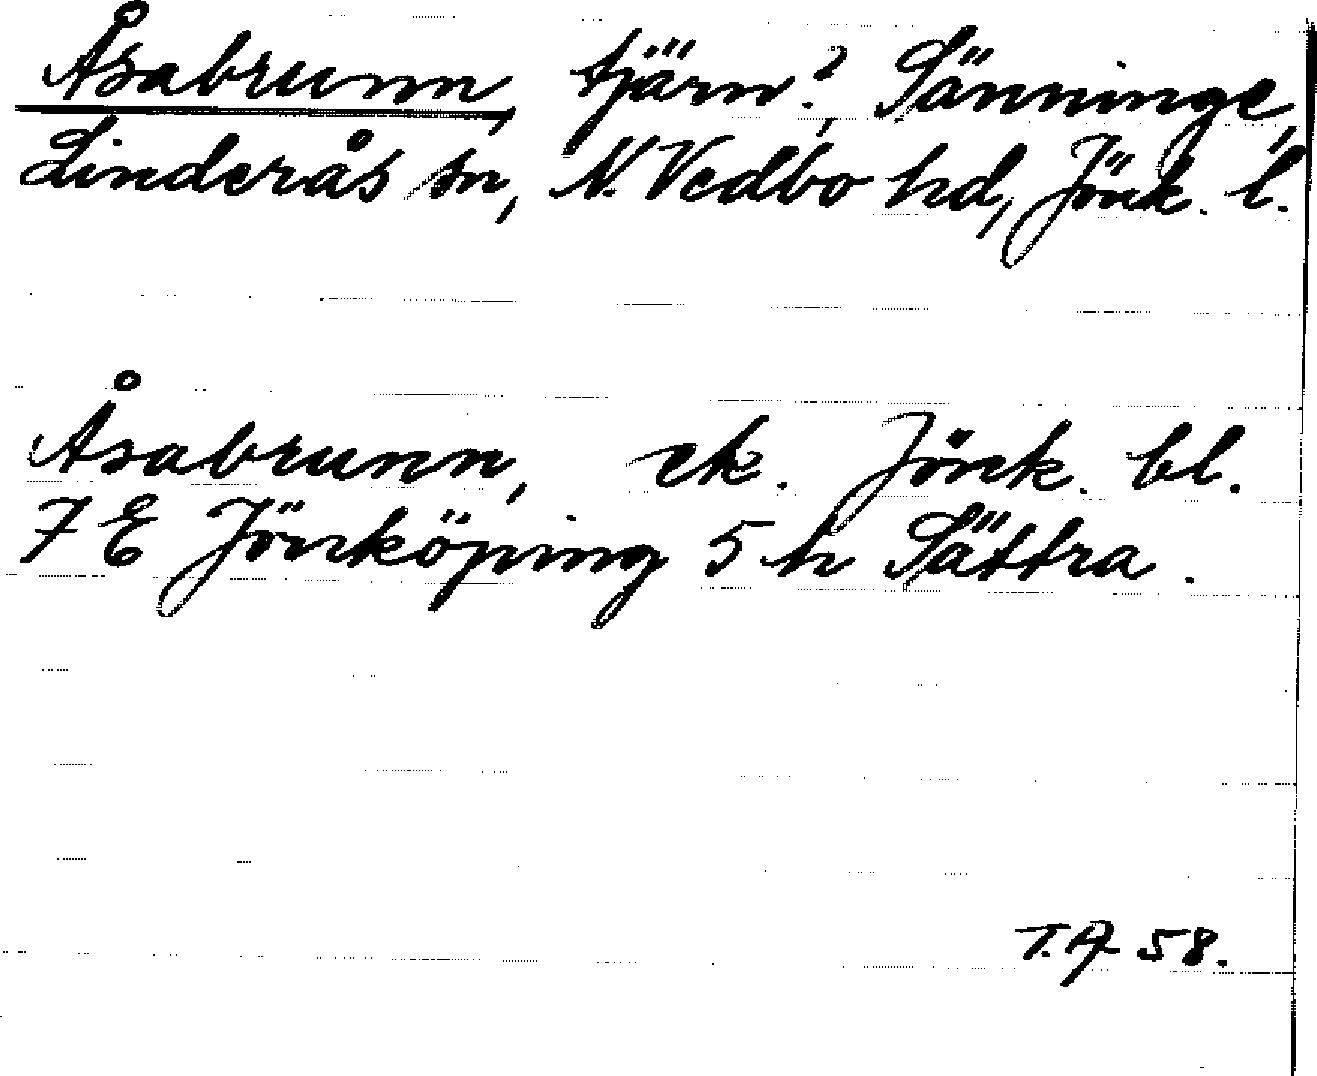 Åsabrunn, tjärn?, Sänninge,
Linderås sn, N. Vedbo hd, Jönk. l.
Åsabrunn, ek. Jönk. bl.
7 E Jönköping 5 h Sättra.
T. A 58.